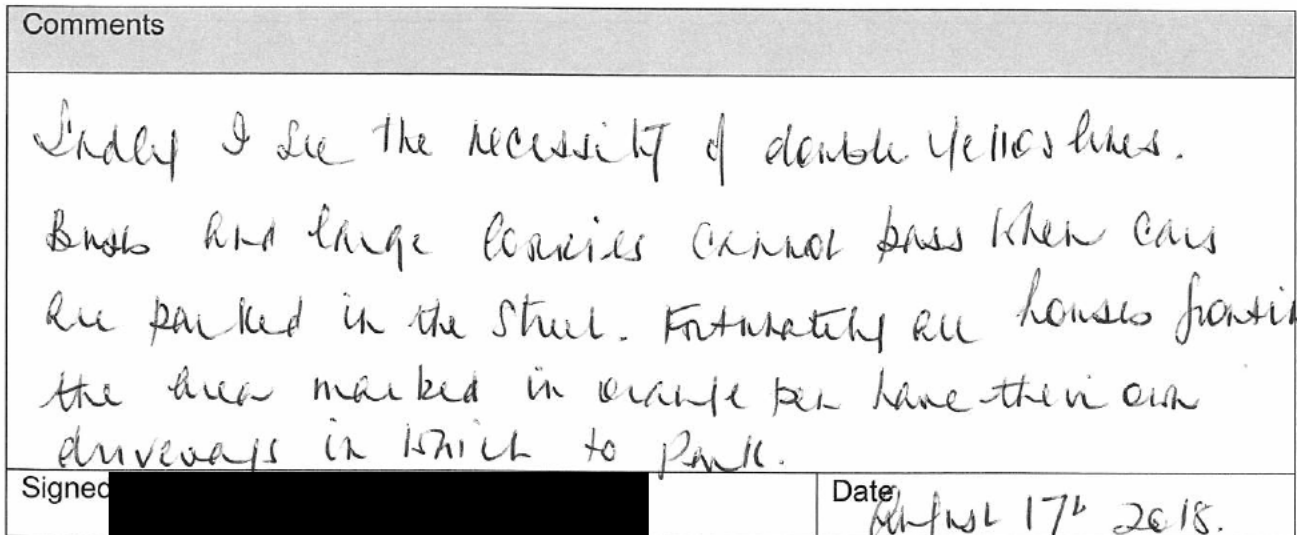 Comments
Sadly I see the necessity of double yellow lines.
Buses and large lorries cannot pass when cars
are parked in the street. Fortunately all houses frontin
the area marked in orange pen have their own
driveways in which to park.
Signed
Date August 17th 2018.